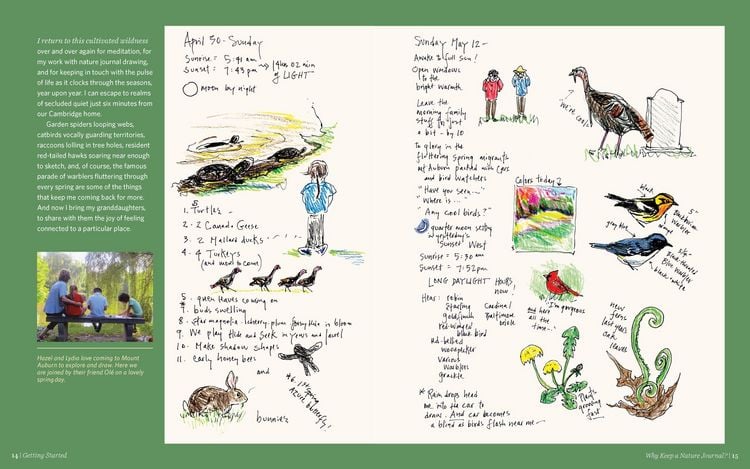 I return to this cultivated wildness
over and over again for meditation, for
my work with nature journal drawing,
and for keeping in touch with the pulse
of life as it clocks through the seasons,
year upon year. I can escape to realms
of secluded quiet just six minutes from
our Cambridge home.
Garden spiders looping webs,
catbirds vocally guarding territories,
raccoons lolling in tree holes, resident
red-tailed hawks soaring near enough
to sketch, and, of course, the famous
parade of warblers fluttering through
every spring are some of the things
that keep me coming back for more.
And now I bring my granddaughters,
to share with them the joy of feeling
connected to a particular place.
Hazel and Lydia love coming to Mount
Auburn to explore and draw. Here we
are joined by their friend Olé on a lovely
spring day.
14 | Getting Started
April 30 - Sunday
Sunrise = 5:41 am
Sunset = 7:43 pm
14 hr 02 min
of LIGHT
moon by night
1. 5 Turtles -
2. 2 Canada Geese
3. 2 Mallard ducks
4. 4 Turkeys
(and more to come)
5. green leaves coming on
7. buds swelling
8. Star magnolia - cherry - plum forsythia in bloom
9. We play Hide and Seek in yews and laurel
10. Make shadow shapes
11. early honey bees
and
#6. 1st spring
Azure butterfly!
bunnies
Sunday May 12 -
Awake 1 full sun!
Open windows
to the
bright warmth.
Leave the
morning family
stuff for just
a bit - by 10
To glory in the
fluttering spring migrants
Mt Auburn packed with cars
and bird watchers
"Have you seen...."
"Where is...
"Any cool birds?"
quarter moon setting
in yesterday's
Sunset West
Sunrise = 5:30 am
Sunset = 7:52 pm
LONG DAYLIGHT HOURS,
now!
Hear: robin
starling Cardinal
goldfinch Baltimore
oriole
red-winged
black bird
rd-bellied
woodpecker
various
warblers
grackle
* Rain drops head
me into the car to
draw. And car becomes
a blind as birds flash near me -
"We're cool"
Colors today?
black
5"
Blackburnian
Warbler
orange
gray blue
5¼"
Black-throated
Blue Warbler
black-white
"I'm gorgeous
and here
all the
time..."
new
ferns
last year's
oak
leaves
Plants
growing
fast
Why Keep a Nature Journal? | 15